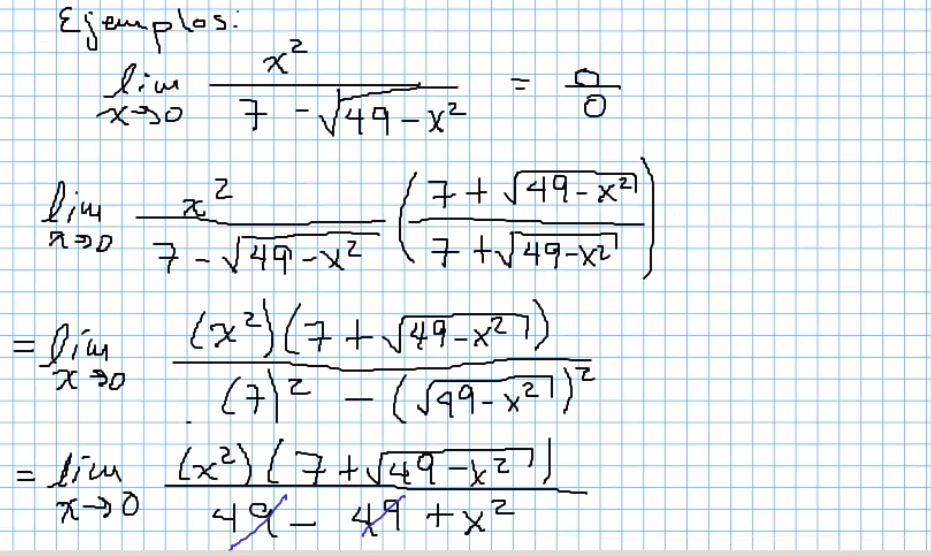 Ejemplos:
lim x→0 x² / (7 - √(49 - x²)) = 0/0
lim x→0 x² / (7 - √(49 - x²)) ( (7 + √(49 - x²)) / (7 + √(49 - x²)) )
= lim x→0 (x²)(7 + √(49 - x²)) / ((7)² - (√(49 - x²))²)
= lim x→0 (x²)(7 + √(49 - x²)) / (49 - 49 + x²)